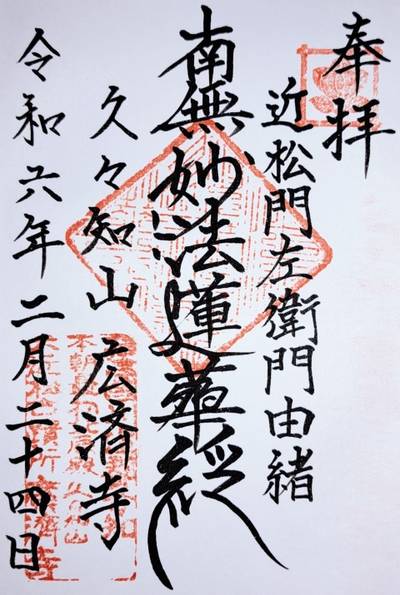 奉拝
近松門左衛門由緒
南無妙法蓮華経
久々知山 広済寺
令和六年二月二十四日